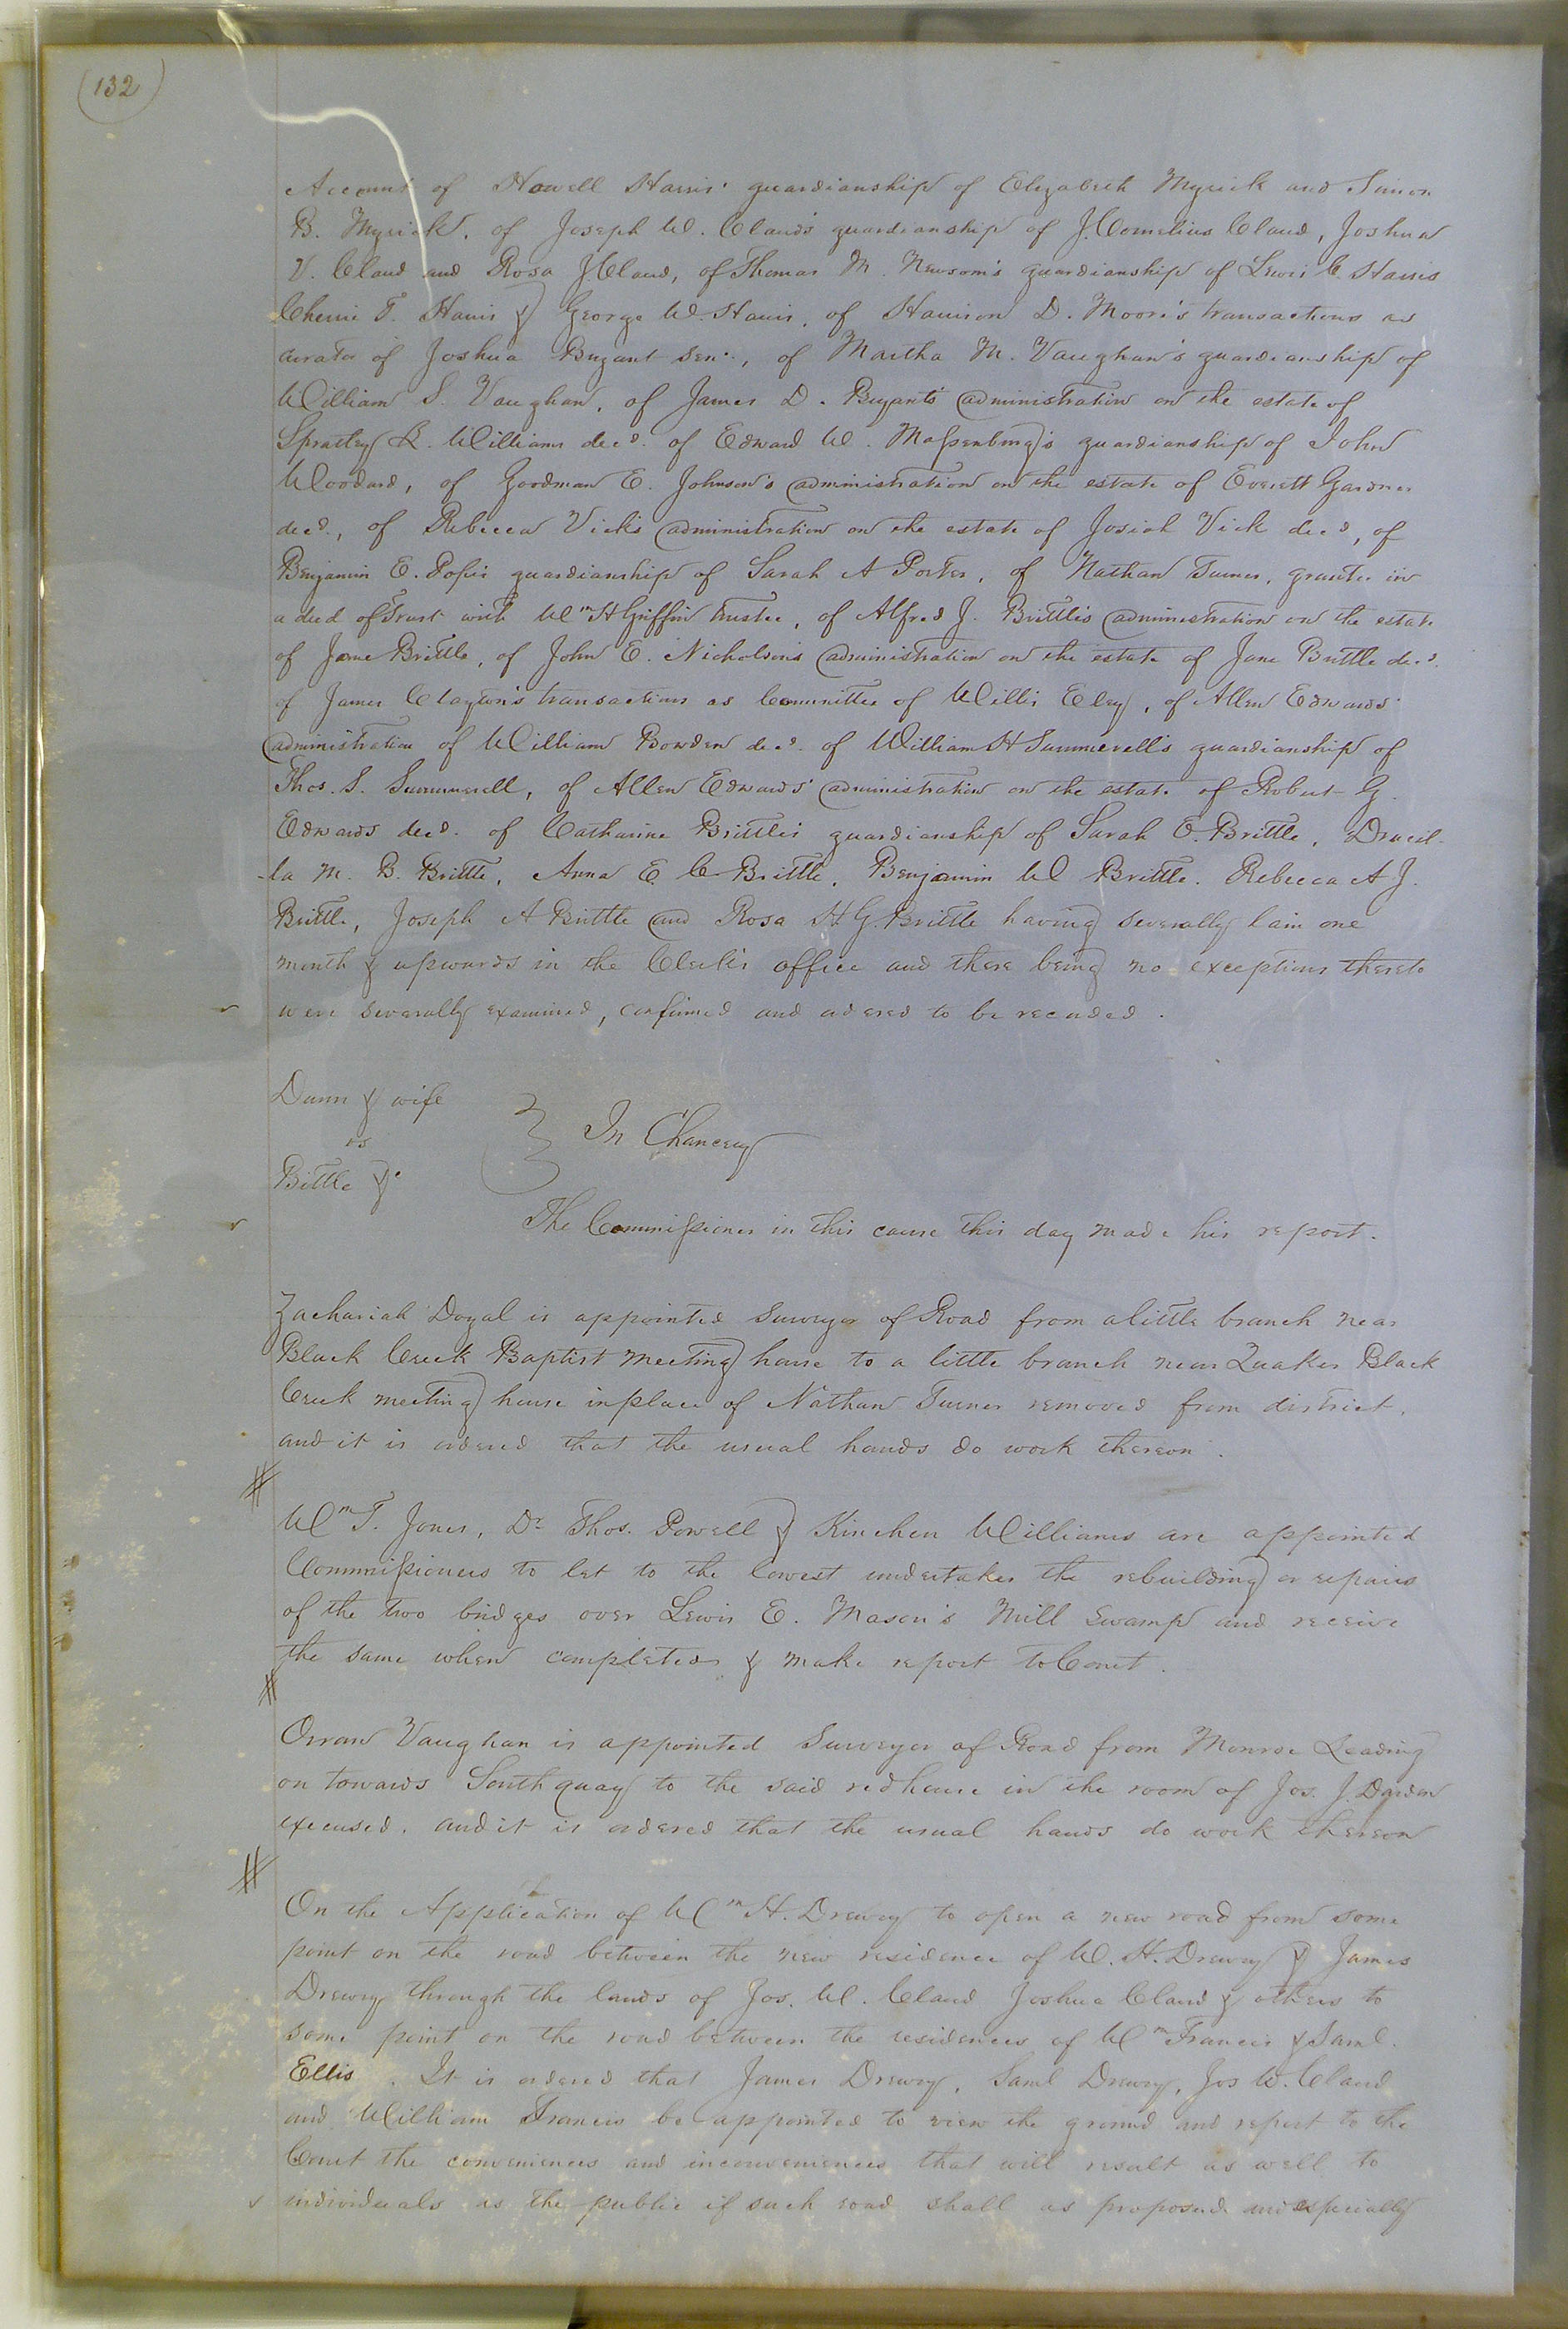 132
Account of Howell Harris' guardianship of Elizabeth Myrick and Simon
B. Myrick, of Joseph W. Claud's guardianship of J. Cornelius Claud, Joshua
V. Claud and Rosa J. Claud, of Thomas M. Newsom's guardianship of Lewis C. Harris
Cherrie T. Harris & George W. Harris, of Harrison D. Moore's transactions as
curator of Joshua Bryant Senr., of Martha M. Vaughan's guardianship of
William S. Vaughan, of James D. Bryant's administration on the estate of
Spratley R. Williams decd. of Edward W. Massenburg's guardianship of John
Woodard, of Goodman E. Johnson's administration on the estate of Everett Gardner
decd., of Rebecca Vick's administration on the estate of Josiah Vick decd, of
Benjamin E. Pope's guardianship of Sarah A Porter, of Nathan Turner, grantee in
a deed of Trust with Wm H Griffin trustee, of Alfred J. Brittle's administration on the estate
of Jane Brittle, of John E. Nicholson's administration on the estate of Jane Brittle decd.
of James Clayton's transactions as Committee of Willis Eley, of Allen Edwards'
administration of William Bowden decd. of William H Summerell's guardianship of
Thos. S. Summerell, of Allen Edwards' administration on the estate of Robert G.
Edwards decd. of Catharine Brittle's guardianship of Sarah E. Brittle, Drucil-
-la M. B. Brittle, Anna E C Brittle, Benjamin W Brittle. Rebecca A J.
Brittle, Joseph A Brittle and Rosa H G. Brittle having severally lain one
month & upwards in the Clerk's office and there being no exceptions thereto
were severally examined, confirmed and ordered to be recorded.
Dunn & wife
vs
In Chancery
Bittle &c
The Commissioner in this cause this day made his report.
Zachariah Doyal is appointed Surveyor of Road from a little branch near
Black Creek Baptist meeting house to a little branch near Quaker Black
Creek meeting house in place of Nathan Turner removed from district,
and it is ordered that the usual hands do work thereon.
Wm T. Jones, Dr Thos. Powell & Kinchen Williams are appointed
Commissioners to let to the lowest undertaker the rebuilding or repairs
of the two bridges over Lewis E. Mason's Mill Swamp and receive
the same when completed & make report to Court.
Orran Vaughan is appointed Surveyor of Road from Monroe Leading
on towards South quay to the said red house in the room of Jos. J. Darden
excused. and it is ordered that the usual hands do work thereon
On the Application of Wm H. Drewry to open a new road from some
point on the road between the new residence of W. H. Drewry & James
Drewry through the lands of Jos. W. Claud Joshua Claud & others to
some point on the road between the residences of Wm Francis & Saml.
Ellis. It is ordered that James Drewry, Saml Drewry, Jos W. Claud
and William Francis be appointed to view the ground and report to the
Court the conveniences and inconveniences that will result as well to
individuals as the public if such road shall as proposed and especially